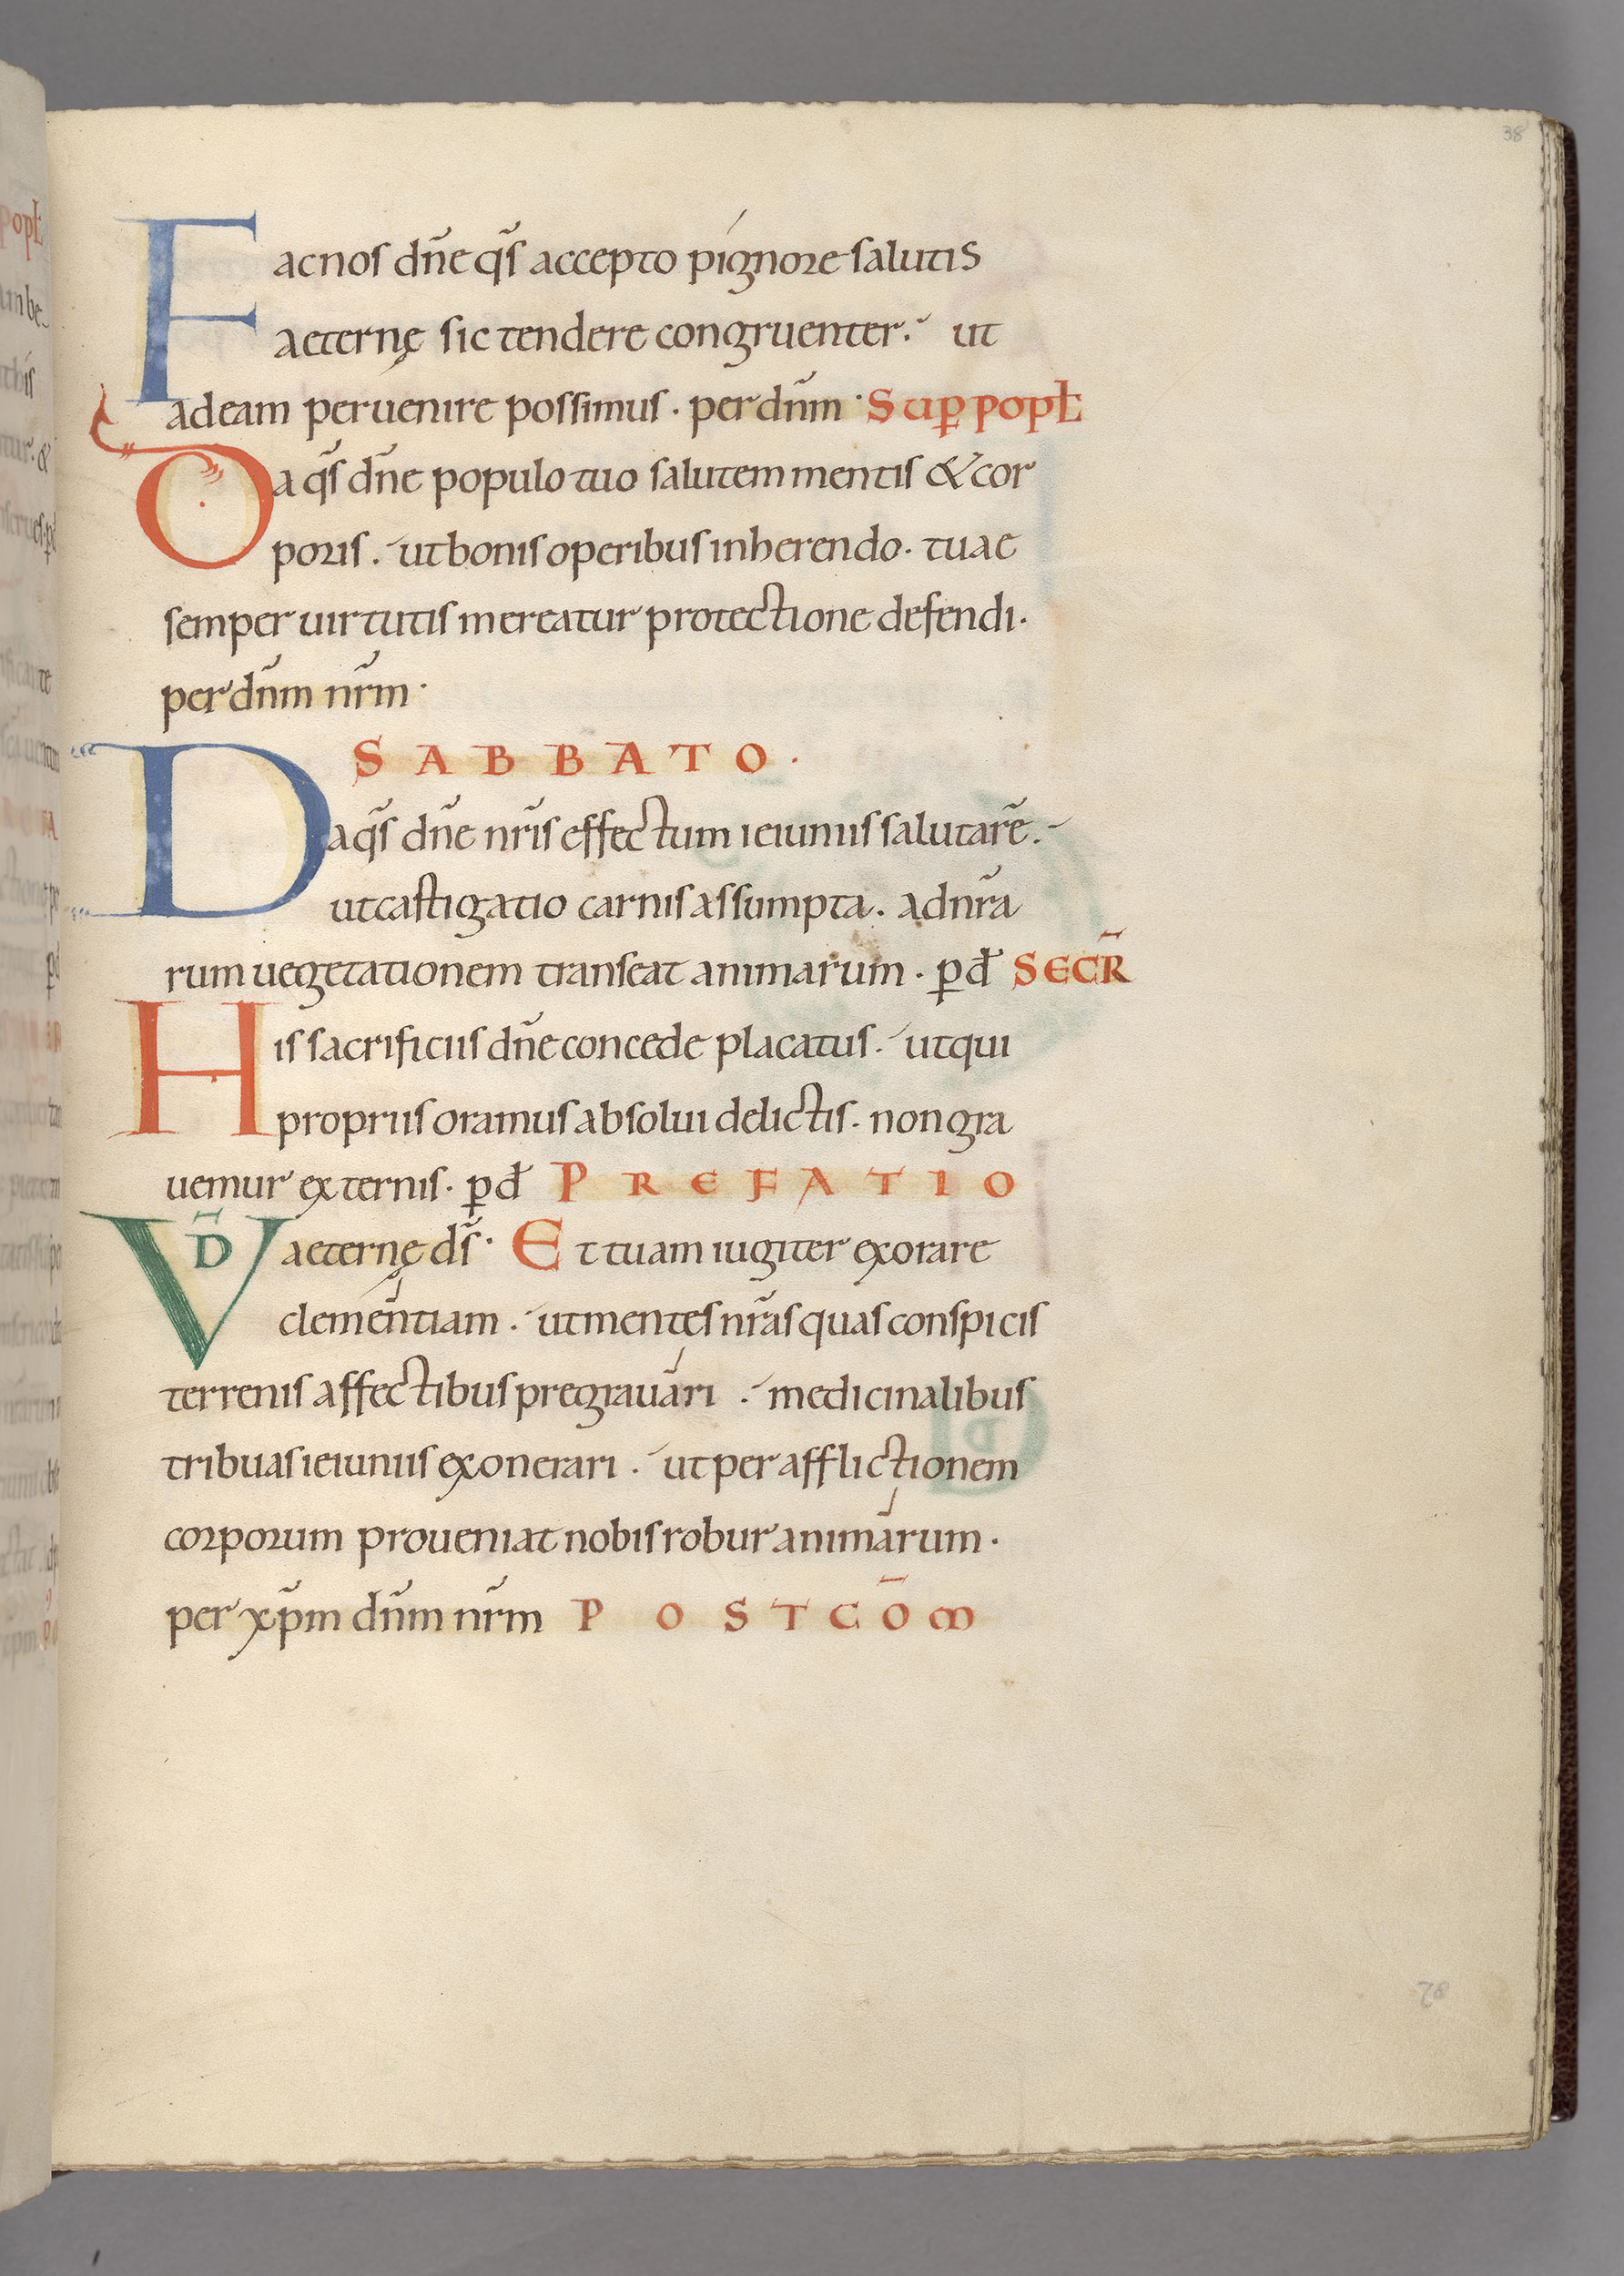 38
Fac nos dn̄e qs̄ accepto pígnore salutis
aeternę sic tendere congruenter. ut
ad eam peruenire possimus. per dn̄m. Sup̱ popł
Da qs̄ dn̄e populo tuo salutem mentis & cor
poris. ut bonis operibus inherendo. tuae
semper uirtutis mereatur protectione defendi.
per dn̄m nr̄m.
SABBATO.
Da qs̄ dn̄e nr̄is effectum ieiuniis salutarē.
ut castigatio carnis assumpta. ad nr̄a
rum uegetationem transeat animarum. p̱ đ SECR̄
His sacrificiis dn̄e concede placatus. ut qui
propriis oramus absolui delictis. non gra
uemur externis. p̱ đ PREFATIO
VD̄ aeternę ds̄. Et tuam iugiter exorare
cleméntiam. ut mentes nr̄as quas conspicis
terrenis affectibus pregrauári. medicinalibus
tribuas ieiuniis exonerari. ut per afflictionem
corporum proueniat nobis robur animárum.
per xp̄m dn̄m nr̄m POSTCŌM